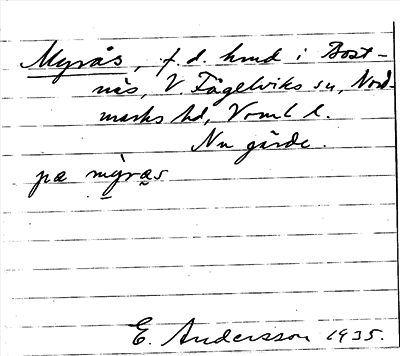 Myrås, f. d. hmd i Bost-
näs, V. Fågelviks sn, Nord-
marks hd, Vrml l.
Nu gärde.
pa mỳras
E. Andersson 1935.